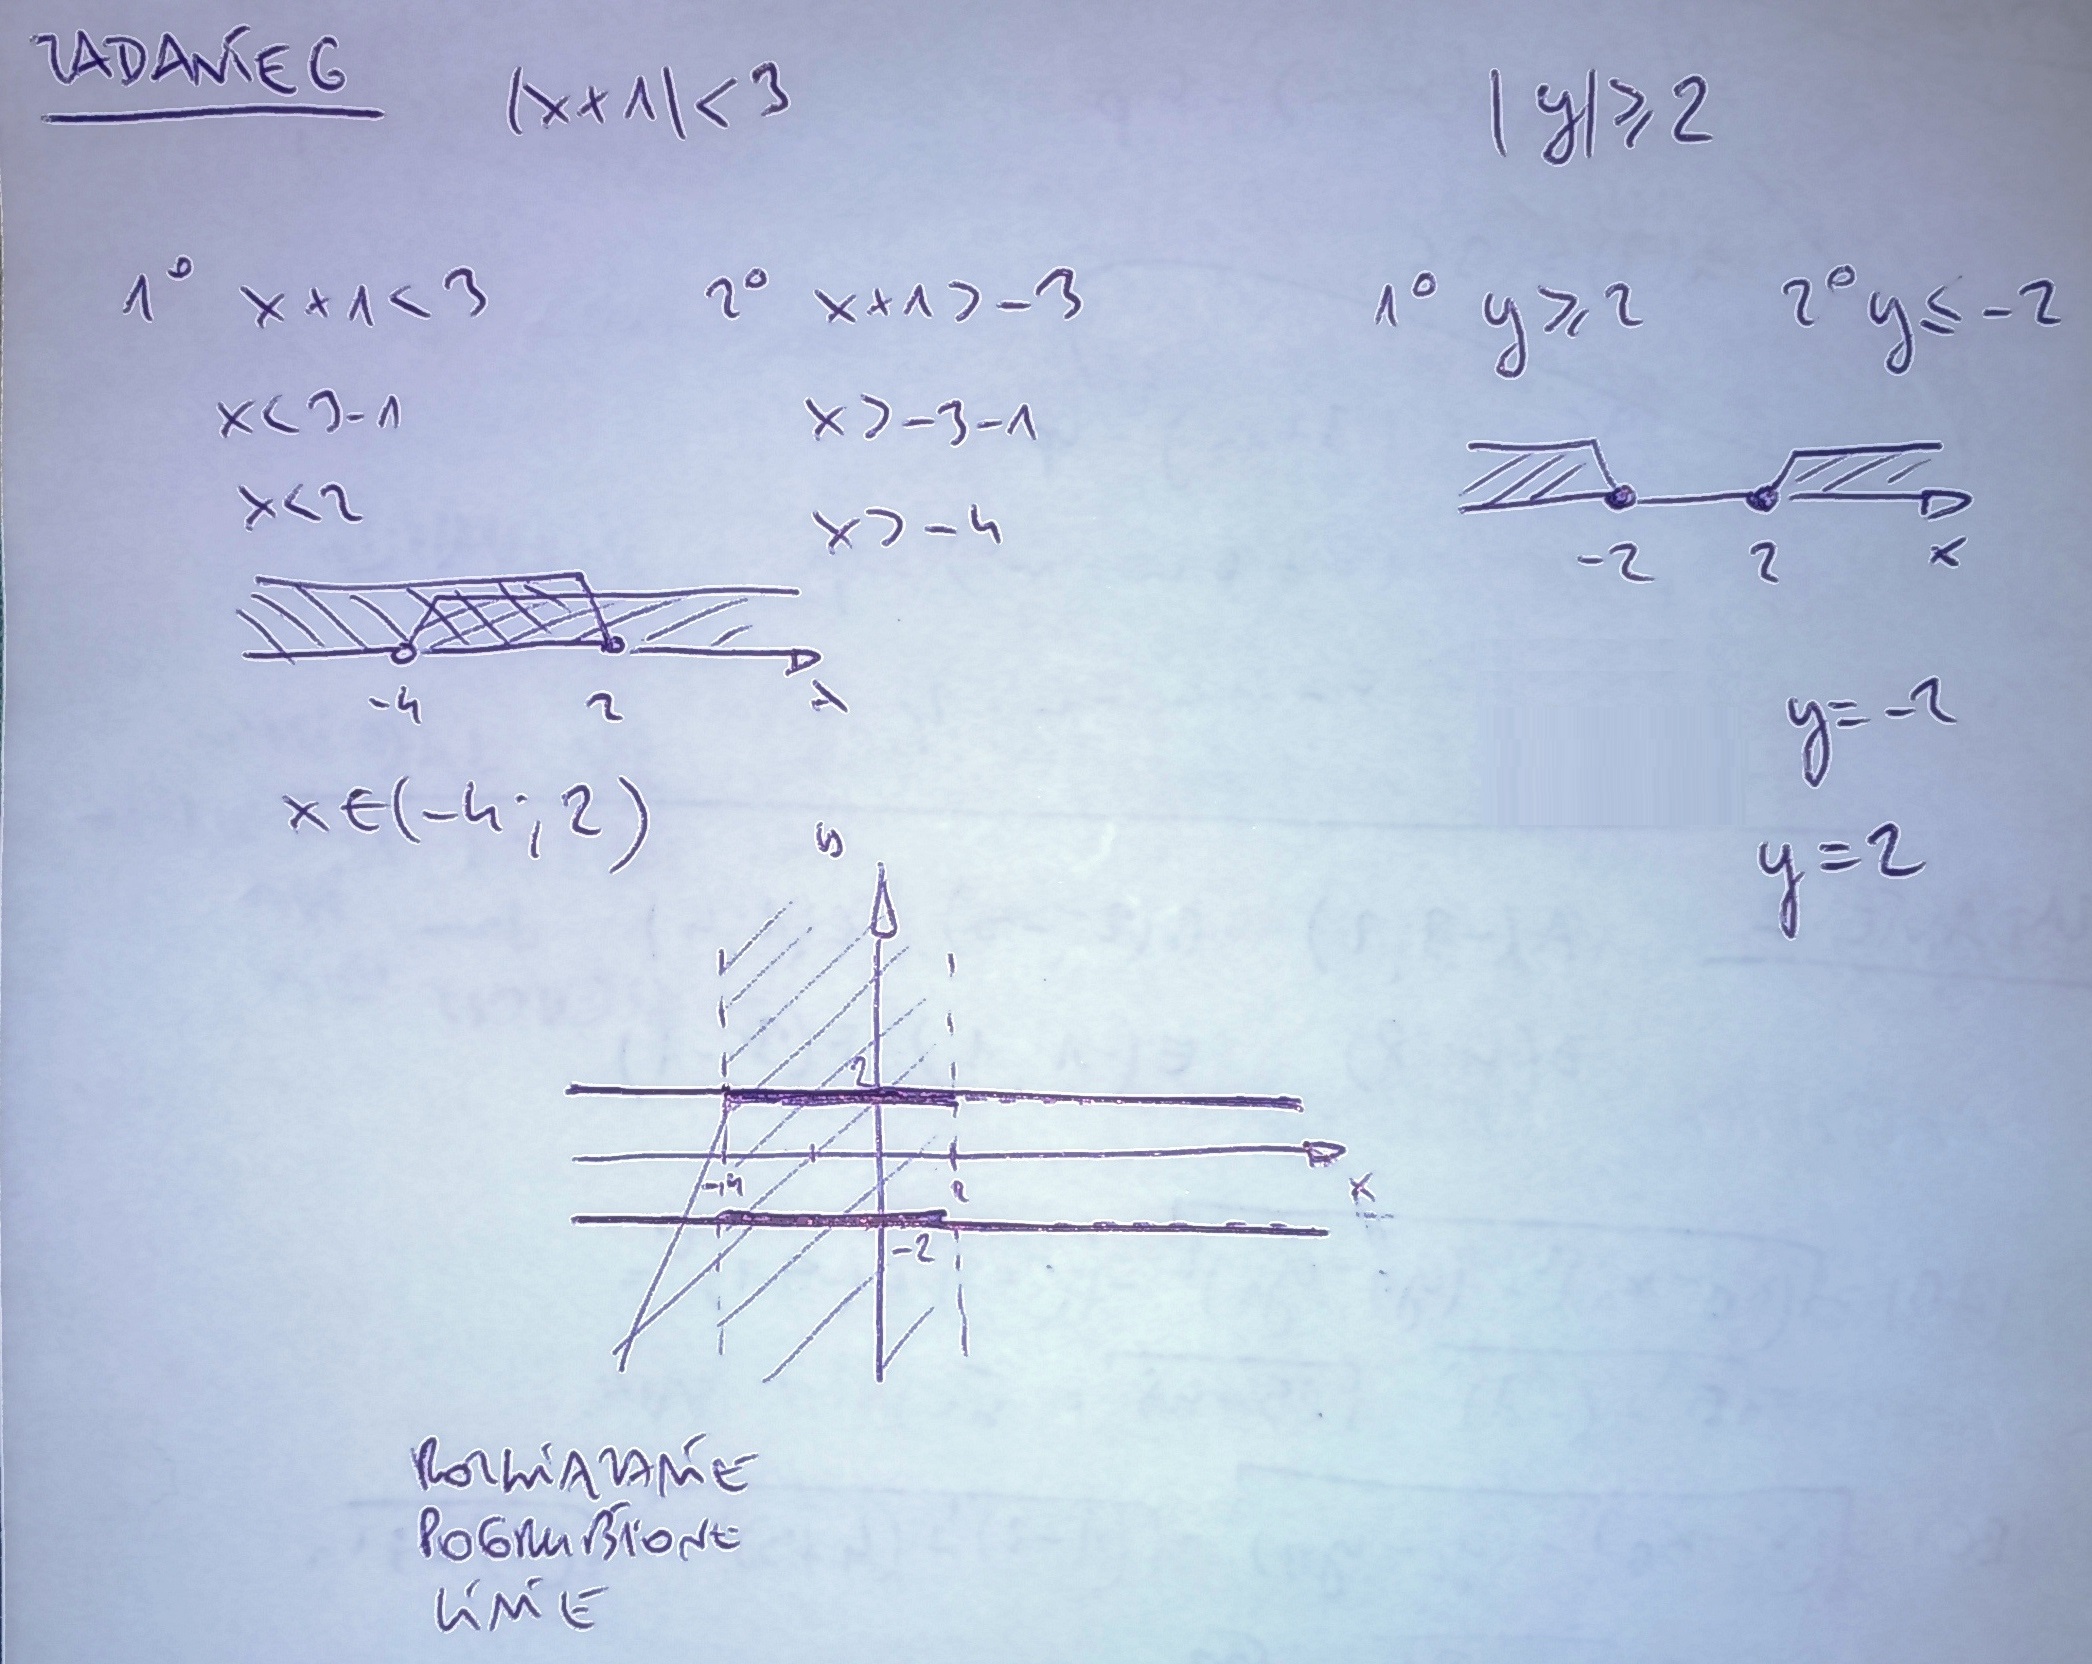 ZADANIE 6
|x+1|<3
|y|⩾2
1° x+1<3
2° x+1>-3
1° y⩾2
2° y≤-2
x<3-1
x>-3-1
x<2
x>-4
-2 2 x
-4 2 x
y=-2
x∈(-4;2)
y=2
y
2
-4 2 x
-2
ROZWIĄZANIE
POGRUBIONE
LINIE